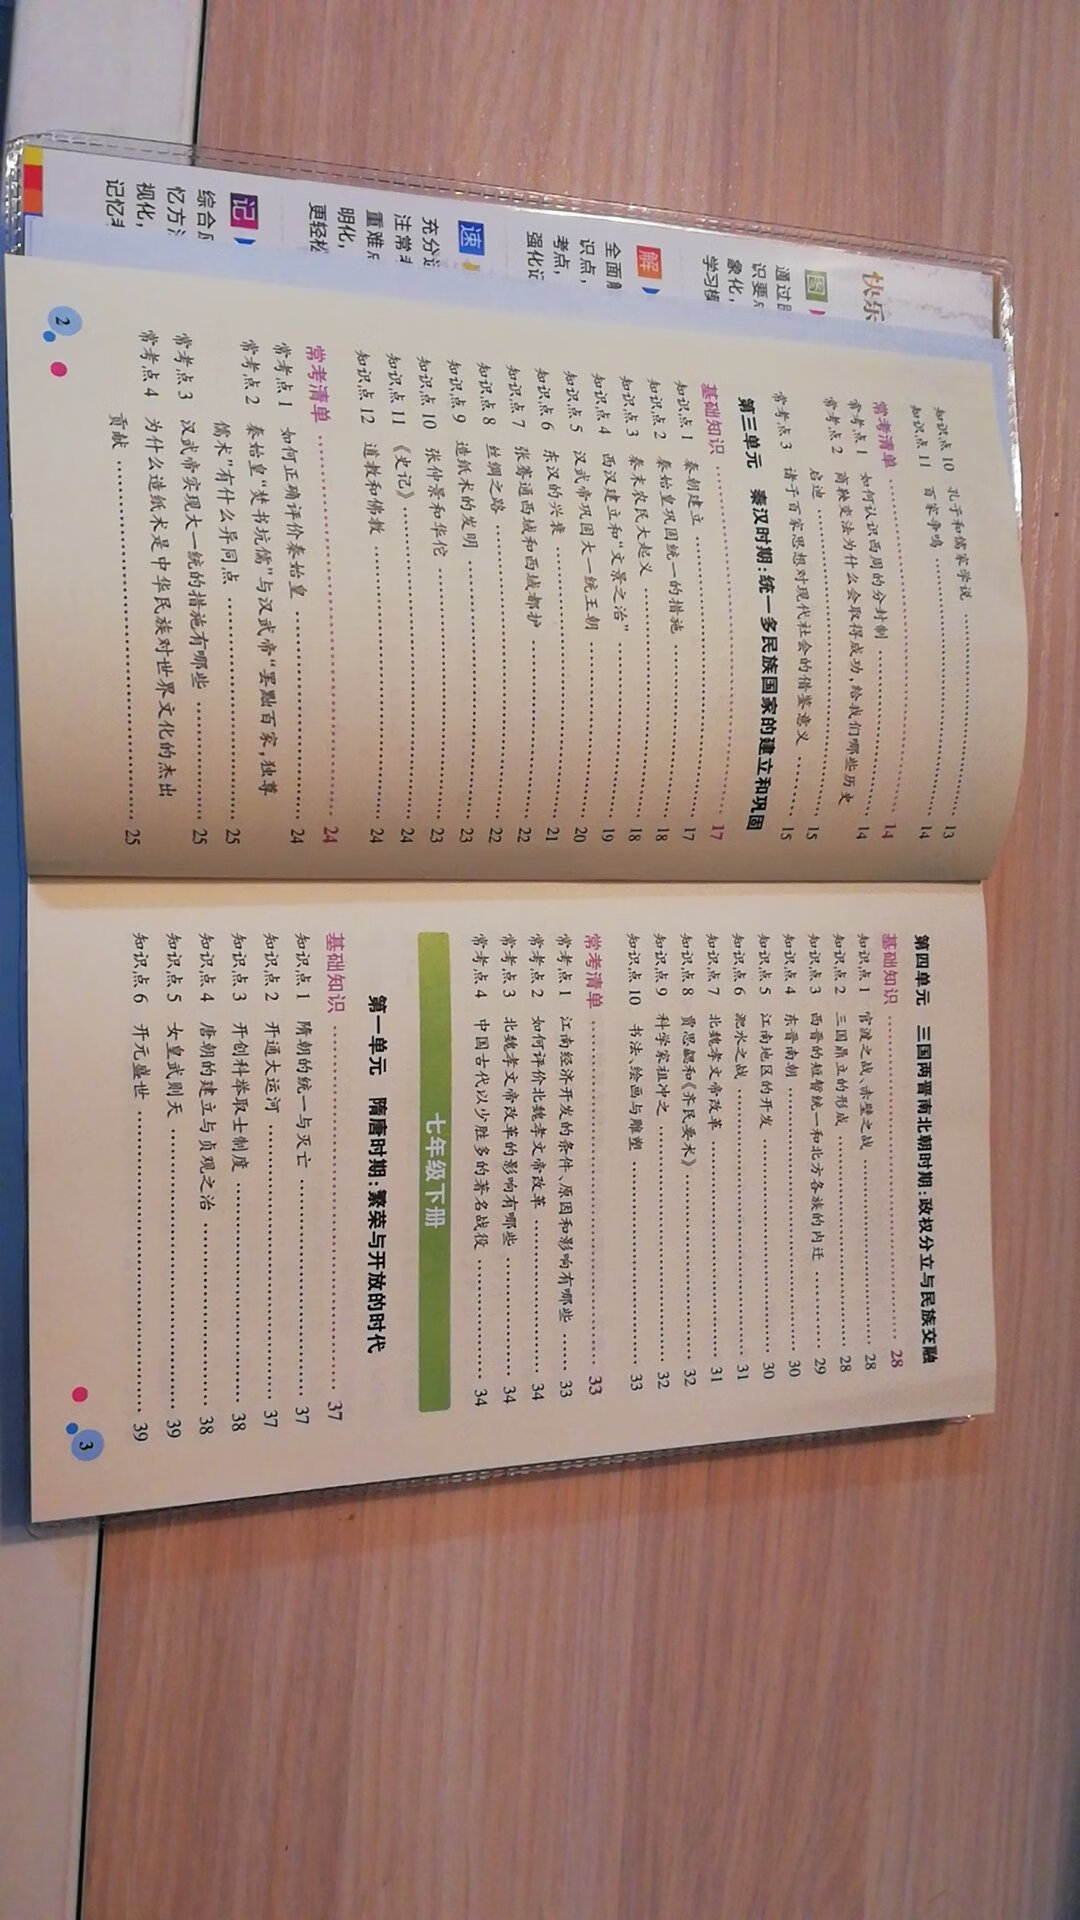 快乐
图
通过图
识要点
象化,
学习模
解
全面解
识点,
考点,
强化记
速
充分运
注常考
重难点
明化,
更轻松
记
综合应
忆方法
视化,
记忆考
知识点 10 孔子和儒家学说 13
知识点 11 百家争鸣 14
常考清单 14
常考点 1 如何认识西周的分封制 14
常考点 2 商鞅变法为什么会取得成功,给我们哪些历史
启迪 15
常考点 3 诸子百家思想对现代社会的借鉴意义 15
第三单元 秦汉时期:统一多民族国家的建立和巩固
基础知识 17
知识点 1 秦朝建立 17
知识点 2 秦始皇巩固统一的措施 18
知识点 3 秦末农民大起义 18
知识点 4 西汉建立和“文景之治” 19
知识点 5 汉武帝巩固大一统王朝 20
知识点 6 东汉的兴衰 21
知识点 7 张骞通西域和西域都护 22
知识点 8 丝绸之路 22
知识点 9 造纸术的发明 23
知识点 10 张仲景和华佗 23
知识点 11 《史记》 24
知识点 12 道教和佛教 24
常考清单 24
常考点 1 如何正确评价秦始皇 24
常考点 2 秦始皇“焚书坑儒”与汉武帝“罢黜百家,独尊
儒术”有什么异同点 25
常考点 3 汉武帝实现大一统的措施有哪些 25
常考点 4 为什么造纸术是中华民族对世界文化的杰出
贡献 25
2
第四单元 三国两晋南北朝时期:政权分立与民族交融
基础知识 28
知识点 1 官渡之战、赤壁之战 28
知识点 2 三国鼎立的形成 28
知识点 3 西晋的短暂统一和北方各族的内迁 29
知识点 4 东晋南朝 30
知识点 5 江南地区的开发 30
知识点 6 淝水之战 31
知识点 7 北魏孝文帝改革 31
知识点 8 贾思勰和《齐民要术》 32
知识点 9 科学家祖冲之 32
知识点 10 书法、绘画与雕塑 33
常考清单 33
常考点 1 江南经济开发的条件、原因和影响有哪些 33
常考点 2 如何评价北魏孝文帝改革 34
常考点 3 北魏孝文帝改革的影响有哪些 34
常考点 4 中国古代以少胜多的著名战役 34
七年级下册
第一单元 隋唐时期:繁荣与开放的时代
基础知识 37
知识点 1 隋朝的统一与灭亡 37
知识点 2 开通大运河 37
知识点 3 开创科举取士制度 38
知识点 4 唐朝的建立与贞观之治 38
知识点 5 女皇武则天 39
知识点 6 开元盛世 39
3